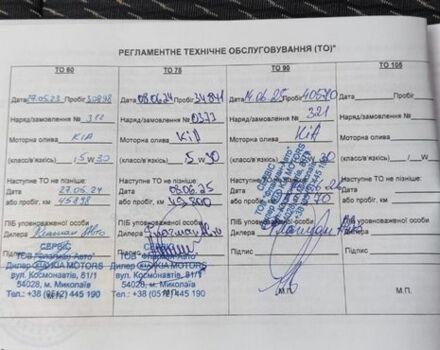 РЕГЛАМЕНТНЕ ТЕХНІЧНЕ ОБСЛУГОВУВАННЯ (ТО)*
ТО 60
Дата 27.05.23 Пробіг 30898
Наряд/замовлення № 312
Моторна олива KIA
(класс/в'язкість) 5 W 30
Наступне ТО не пізніше:
Дата 27.05.24
або пробіг, км 45898
ПІБ уповноваженої особи
Дилера
Підпис
СЕРВІС
ТОВ "Флагман Авто"
Дилер KIA MOTORS
вул. Космонавтів, 81/1
54028, м. Миколаїв
Тел.: +38 (0512) 445 190
ТО 75
Дата 08.06.24 Пробіг 34841
Наряд/замовлення № 0373
Моторна олива KIA
(класс/в'язкість) 5 W 30
Наступне ТО не пізніше:
Дата 08.06.25
або пробіг, км 49800
ПІБ уповноваженої особи
Дилера Флагман Авто
Підпис
СЕРВІС
ТОВ "Флагман Авто"
Дилер KIA MOTORS
вул. Космонавтів, 81/1
54028, м. Миколаїв
Тел.: +38 (0512) 445 190
ТО 90
Дата 14.06.25 Пробіг 40570
Наряд/замовлення № 321
Моторна олива KIA
(класс/в'язкість) W 30
Наступне ТО не пізніше:
Дата
або пробіг, км
ПІБ уповноваженої особи
Дилера Флагман Авто
Підпис
М.П.
ТО 105
Дата Пробіг
Наряд/замовлення №
Моторна олива
(класс/в'язкість) W
Наступне ТО не пізніше:
Дата
або пробіг, км
ПІБ уповноваженої особи
Дилера
Підпис
М.П.